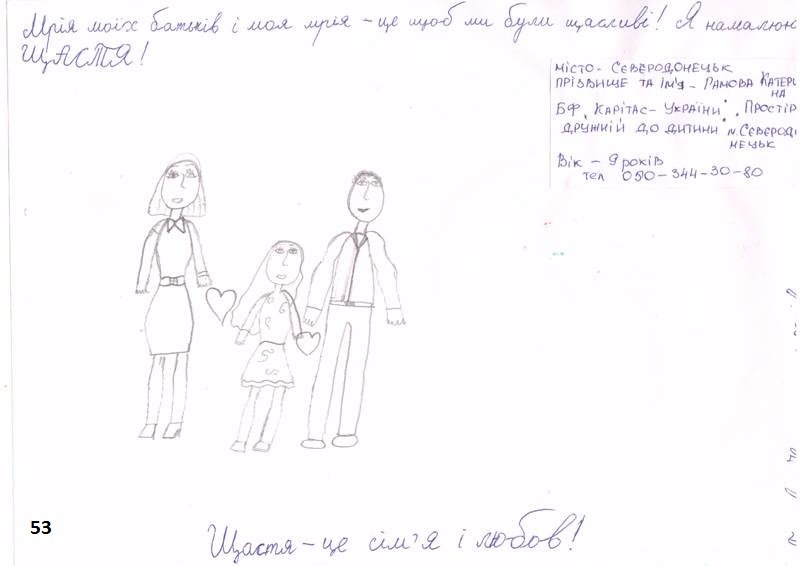 Мрія моїх батьків і моя мрія – це щоб ми були щасливі! Я намалюю
ЩАСТЯ!
МІСТО - СЄВЕРОДОНЕЦЬК
ПРІЗВИЩЕ ТА ІМ'Я - РАМОВА КАТЕРИ
НА
БФ „КАРІТАС - УКРАЇНИ", „ПРОСТІР
ДРУЖНІЙ ДО ДИТИНИ" м. СЄВЕРОДО
НЕЦЬК
Вік – 9 років
тел 050-344-30-80
53
Щастя – це сім'я і любов!